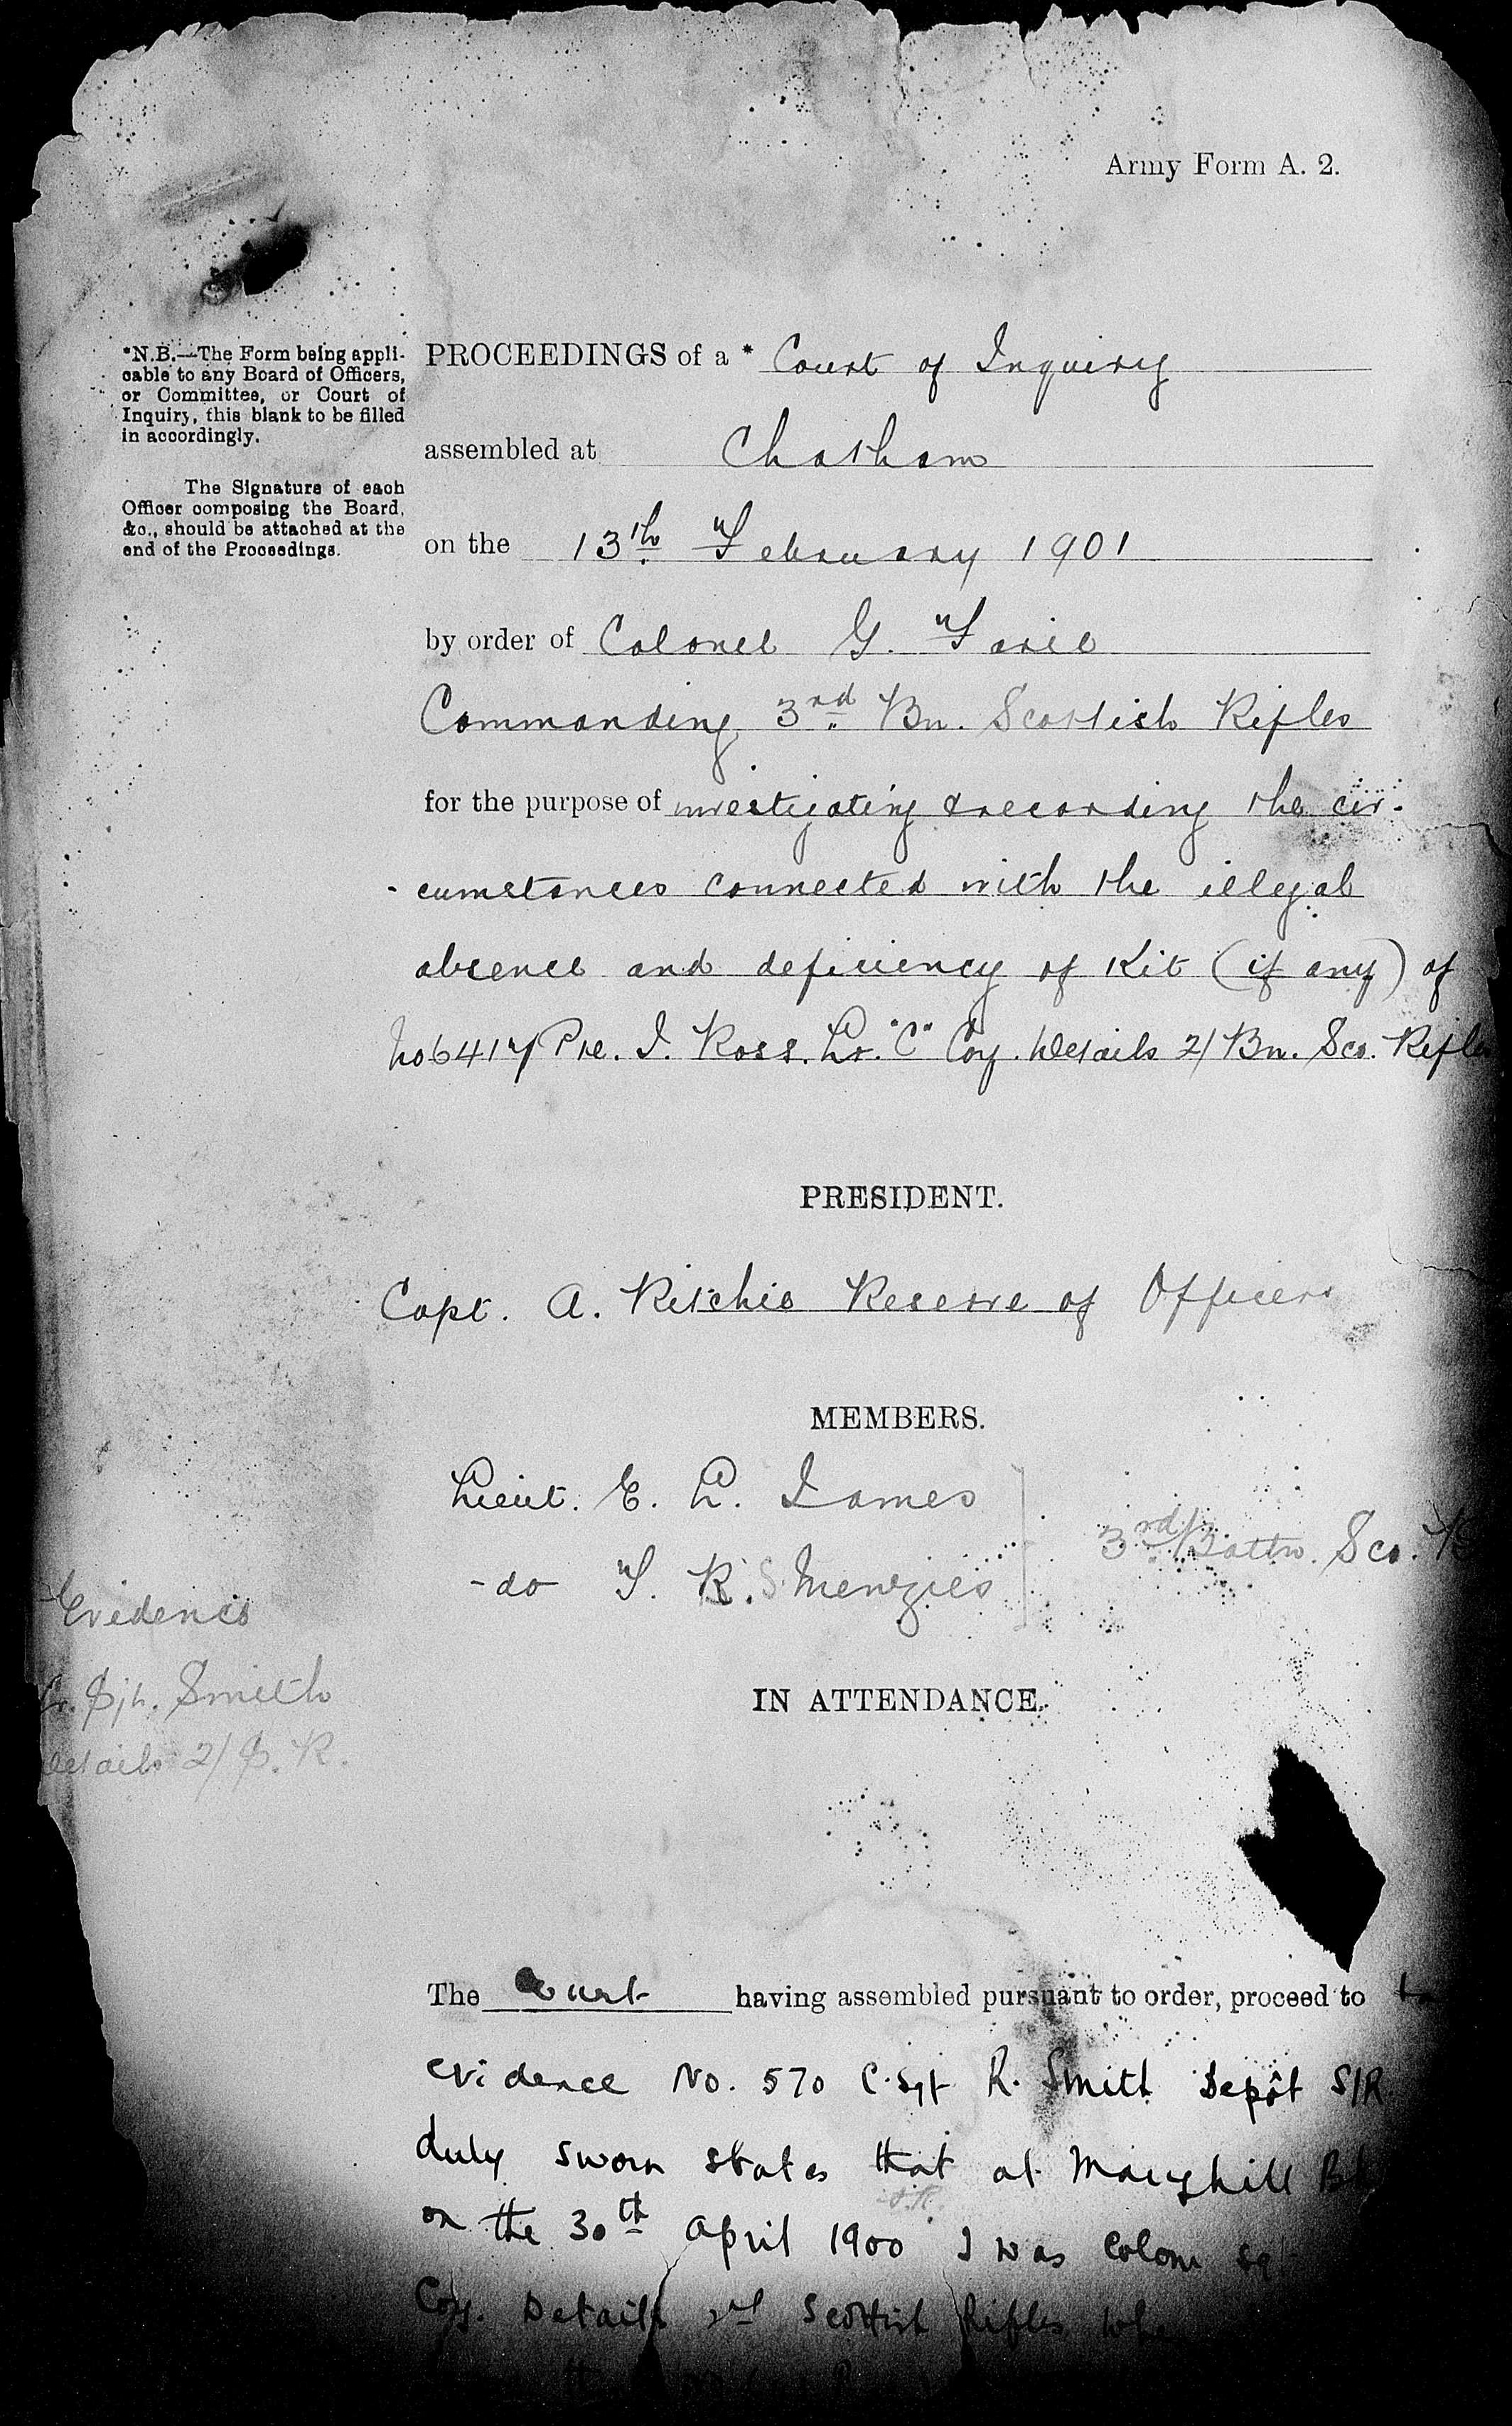 Army Form A. 2.
*N.B.—The Form being appli-
cable to any Board of Officers,
or Committee, or Court of
Inquiry, this blank to be filled
in accordingly.
The Signature of each
Officer composing the Board,
&c., should be attached at the
end of the Proceedings.
PROCEEDINGS of a * Court of Inquiry
assembled at Chatham
on the 13th February 1901
by order of Colonel G. Farie
Commanding 3rd Bn. Scottish Rifles
for the purpose of investigating & recording the cir-
-cumstances connected with the illegal
absence and deficiency of Kit (if any) of
No 6417 Pte. J. Ross. Lr. "C" Coy. Details 2/ Bn. Sco. Rifles
PRESIDENT.
Capt. A. Ritchie Reserve of Officers
MEMBERS.
Lieut. E. L. James
-do F. R. S. Menzies
3rd Battn. Sco.
Evidence
Sjt. Smith
Details 2/ S. R.
IN ATTENDANCE.
The Court having assembled pursuant to order, proceed to
evidence No. 570 C. Sgt R. Smith Depôt S/R
duly sworn states that at Maryhill
on the 30th April 1900 I was Colour
Coy. Details 2nd Scottish Rifles